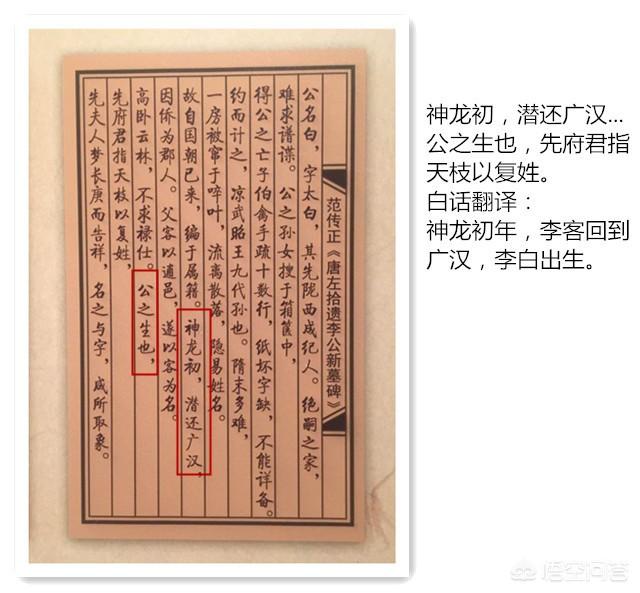 公名白，字太白，其先陇西成纪人。绝嗣之家，
难求谱谍。公之孙女搜于箱箧中，
得公之亡子伯禽手疏十数行，纸坏字缺，不能详备。
约而计之，凉武昭王九代孙也。隋末多难，
一房被窜于碎叶，流离散落，隐易姓名。
故自国朝已来，编于属籍。神龙初，潜还广汉，
因侨为郡人。父客以逋邑，遂以客为名。
高卧云林，不求禄仕。公之生也，
先府君指天枝以复姓，
先夫人梦长庚而告祥，名之与字，咸所取象。
范传正《唐左拾遗李公新墓碑》
神龙初，潜还广汉...
公之生也，先府君指
天枝以复姓。
白话翻译：
神龙初年，李客回到
广汉，李白出生。
悟空问答